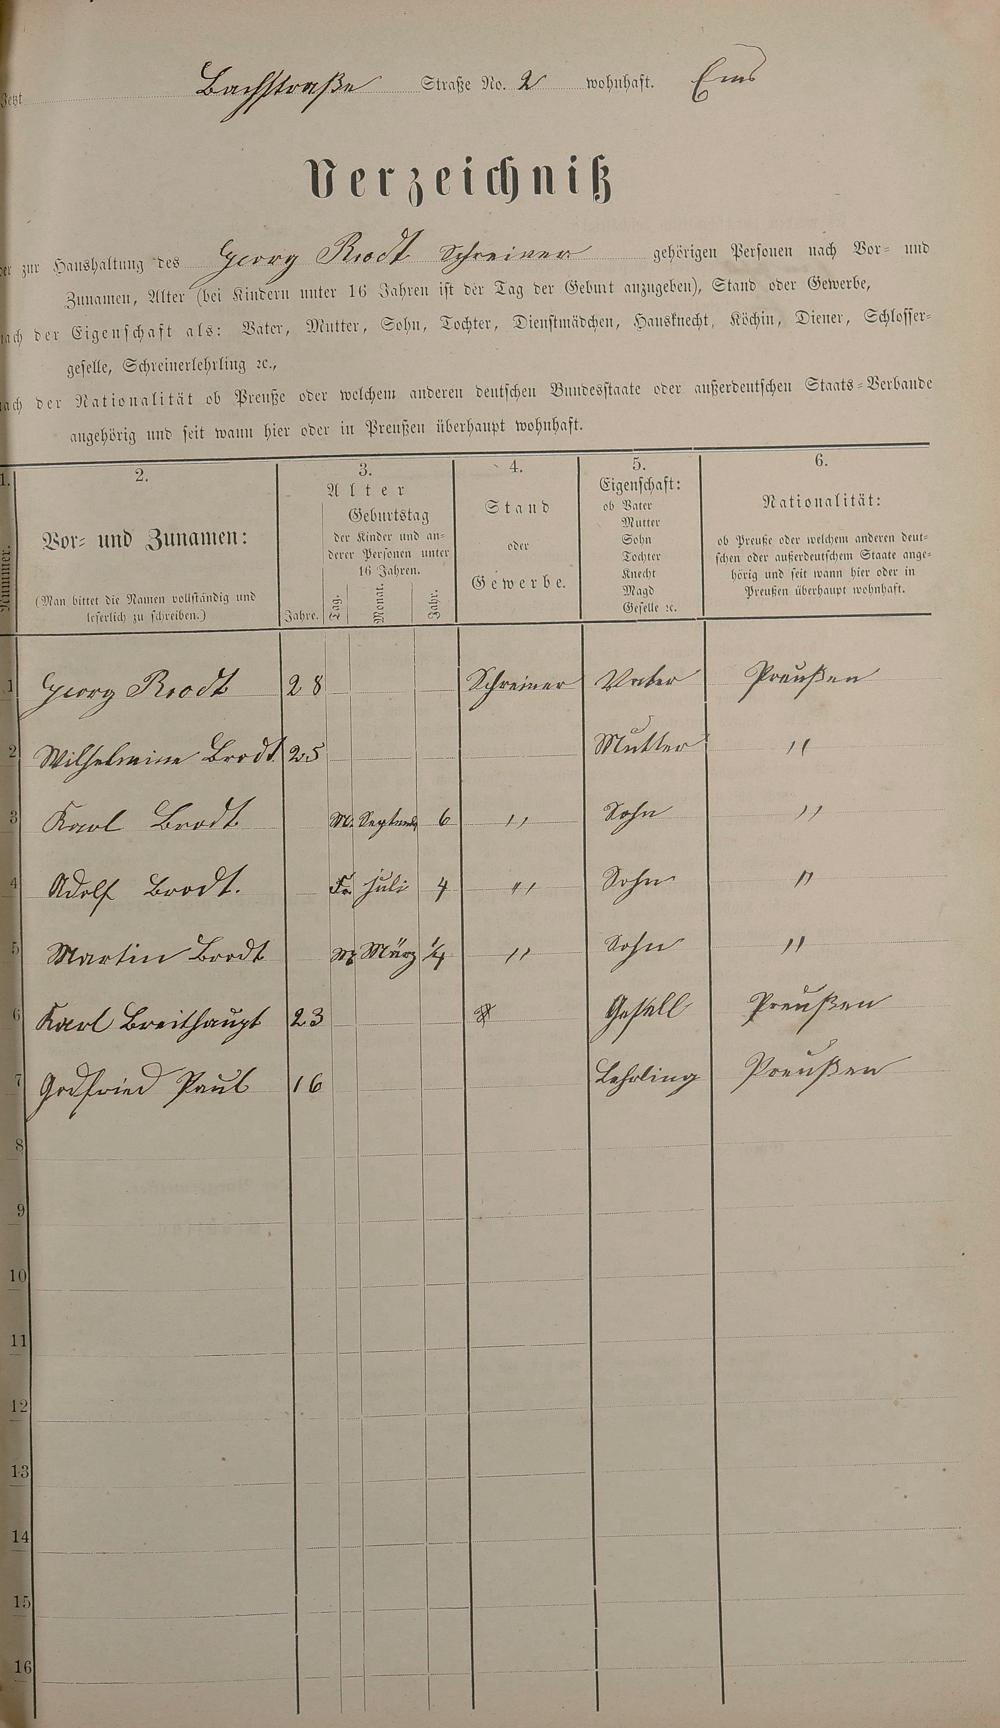 Jetzt Bachstraße Straße No. 2 wohnhaft. Ems
Verzeichniß
der zur Haushaltung des Georg Brodt Schreiner gehörigen Personen nach Vor- und
Zunamen, Alter (bei Kindern unter 16 Jahren ist der Tag der Geburt anzugeben), Stand oder Gewerbe,
nach der Eigenschaft als: Vater, Mutter, Sohn, Tochter, Dienstmädchen, Hausknecht, Köchin, Diener, Schlosser-
geselle, Schreinerlehrling ꝛc.,
nach der Nationalität ob Preuße oder welchem anderen deutschen Bundesstaate oder außerdeutschen Staats-Verbande
angehörig und seit wann hier oder in Preußen überhaupt wohnhaft.
1. 2. 3. 4. 5. 6.
Nummer.
Vor- und Zunamen:
(Man bittet die Namen vollständig und
leserlich zu schreiben.)
Alter
Jahre.
Geburtstag
der Kinder und an-
derer Personen unter
16 Jahren.
Tag. Monat. Jahr.
Stand
oder
Gewerbe.
Eigenschaft:
ob Vater
Mutter
Sohn
Tochter
Knecht
Magd
Geselle ꝛc.
Nationalität:
ob Preuße oder welchem anderen deut-
schen oder außerdeutschem Staate ange-
hörig und seit wann hier oder in
Preußen überhaupt wohnhaft.
1 Georg Brodt 28 Schreiner Vater Preußen
2 Wilhelmine Brodt 25 Mutter "
3 Karl Brodt M. Septemb 6 " Sohn "
4 Adolf Brodt. Fr. Juli 4 " Sohn "
5 Martin Brodt März 1/4 " Sohn "
6 Karl Breithaupt 23 Gesell Preußen
7 Godfried Paul 16 Lehrling Preußen
8
9
10
11
12
13
14
15
16